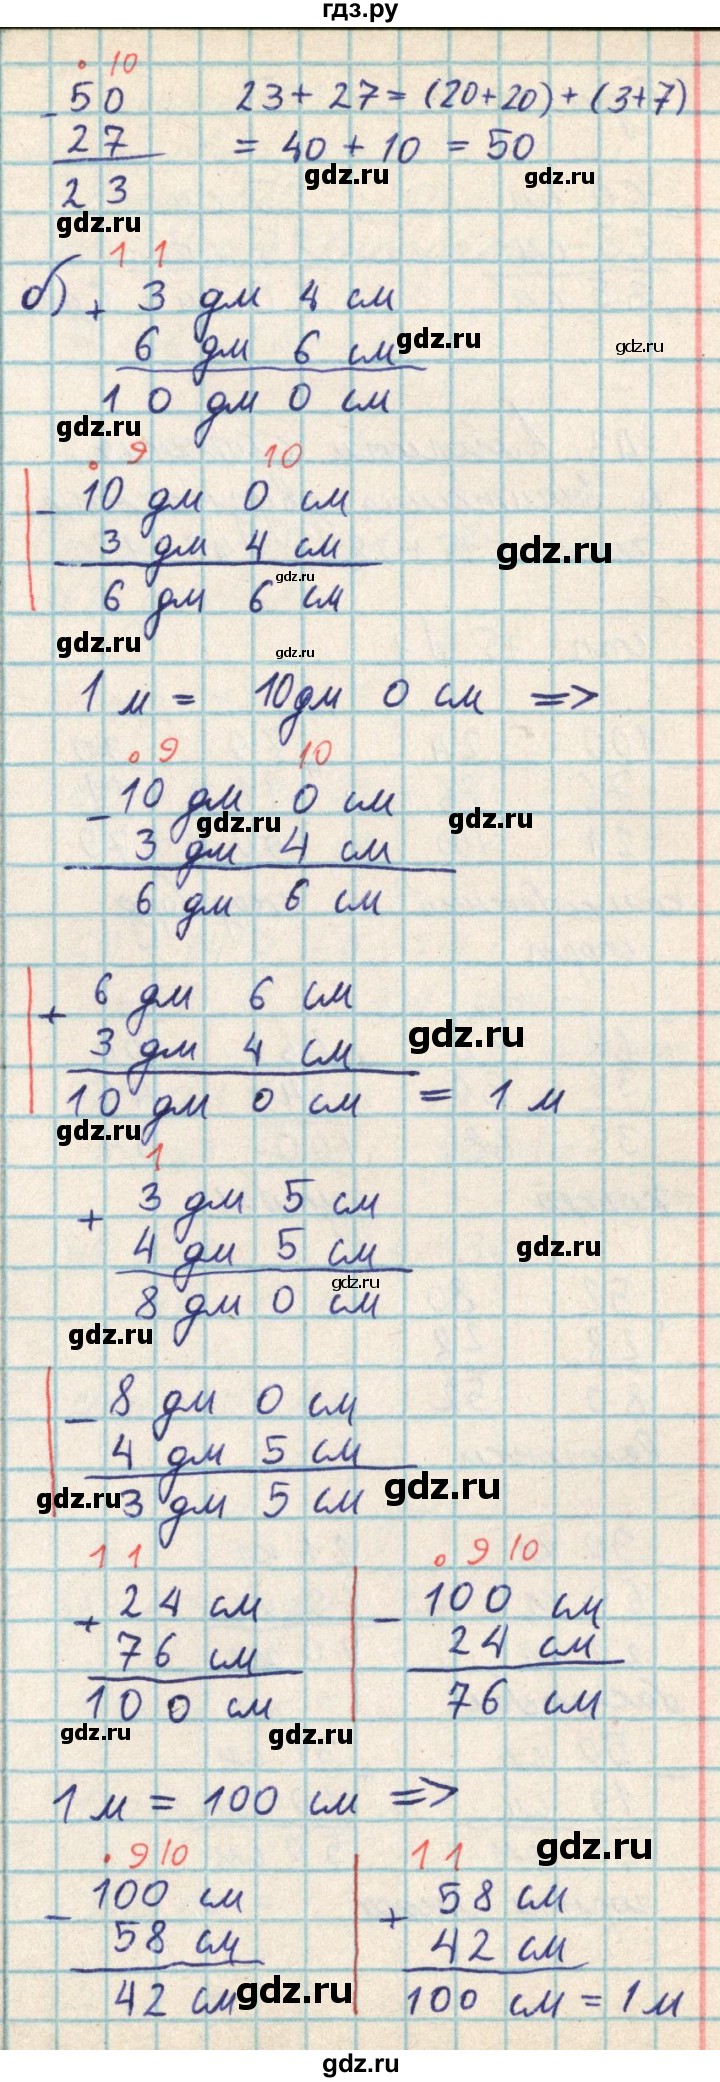 гдз.ру
• 10
- 50 23 + 27 = (20+20) + (3+7)
27 = 40 + 10 = 50
gdz.ru gdz.ru
23
gdz.ru
1 1
б) + 3 дм 4 см
gdz.ru
6 дм 6 см gdz.ru
10 дм 0 см
gdz.ru
• 9 10
- 10 дм 0 см
3 дм 4 см gdz.ru
gdz.ru
6 дм 6 см
gdz.ru gdz.ru
1 м = 10 дм 0 см =>
• 9 10
- 10 дм 0 см
gdz.ru gdz.ru
3 дм 4 см
6 дм 6 см
+ 6 дм 6 см
3 дм 4 см gdz.ru
10 дм 0 см = 1 м
gdz.ru
1
+ 3 дм 5 см
4 дм 5 см gdz.ru
gdz.ru
8 дм 0 см
gdz.ru
- 8 дм 0 см
4 дм 5 см
gdz.ru 3 дм 5 см gdz.ru
1 1 • 9 10
+ 24 см - 100 см
76 см 24 см
100 см 76 см
gdz.ru gdz.ru
1 м = 100 см =>
• 9 10 1 1 gdz.ru
- 100 см + 58 см
58 см 42 см
42 см gdz.ru 100 см = 1 м
gdz.ru